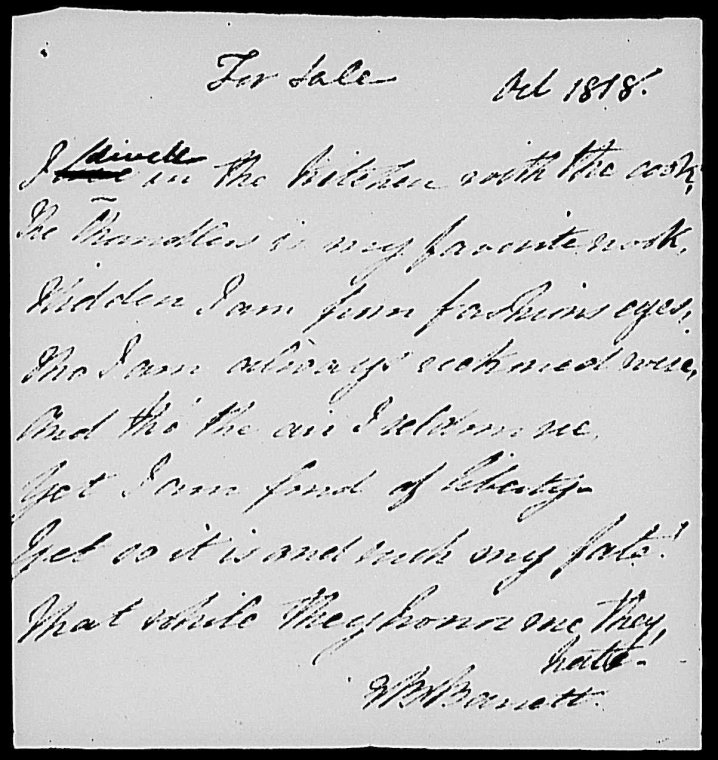 For Sale
Oct 1818.
I dwell in the kitchen with the cook,
The is my favorite nook,
Hidden I am from fashions eyes,
Tho I am always reckoned wise,
And tho' the air I seldom see,
Yet I am fond of liberty.
Yet so it is and such my fate!
That while they honor me they
hate.
Barrett.